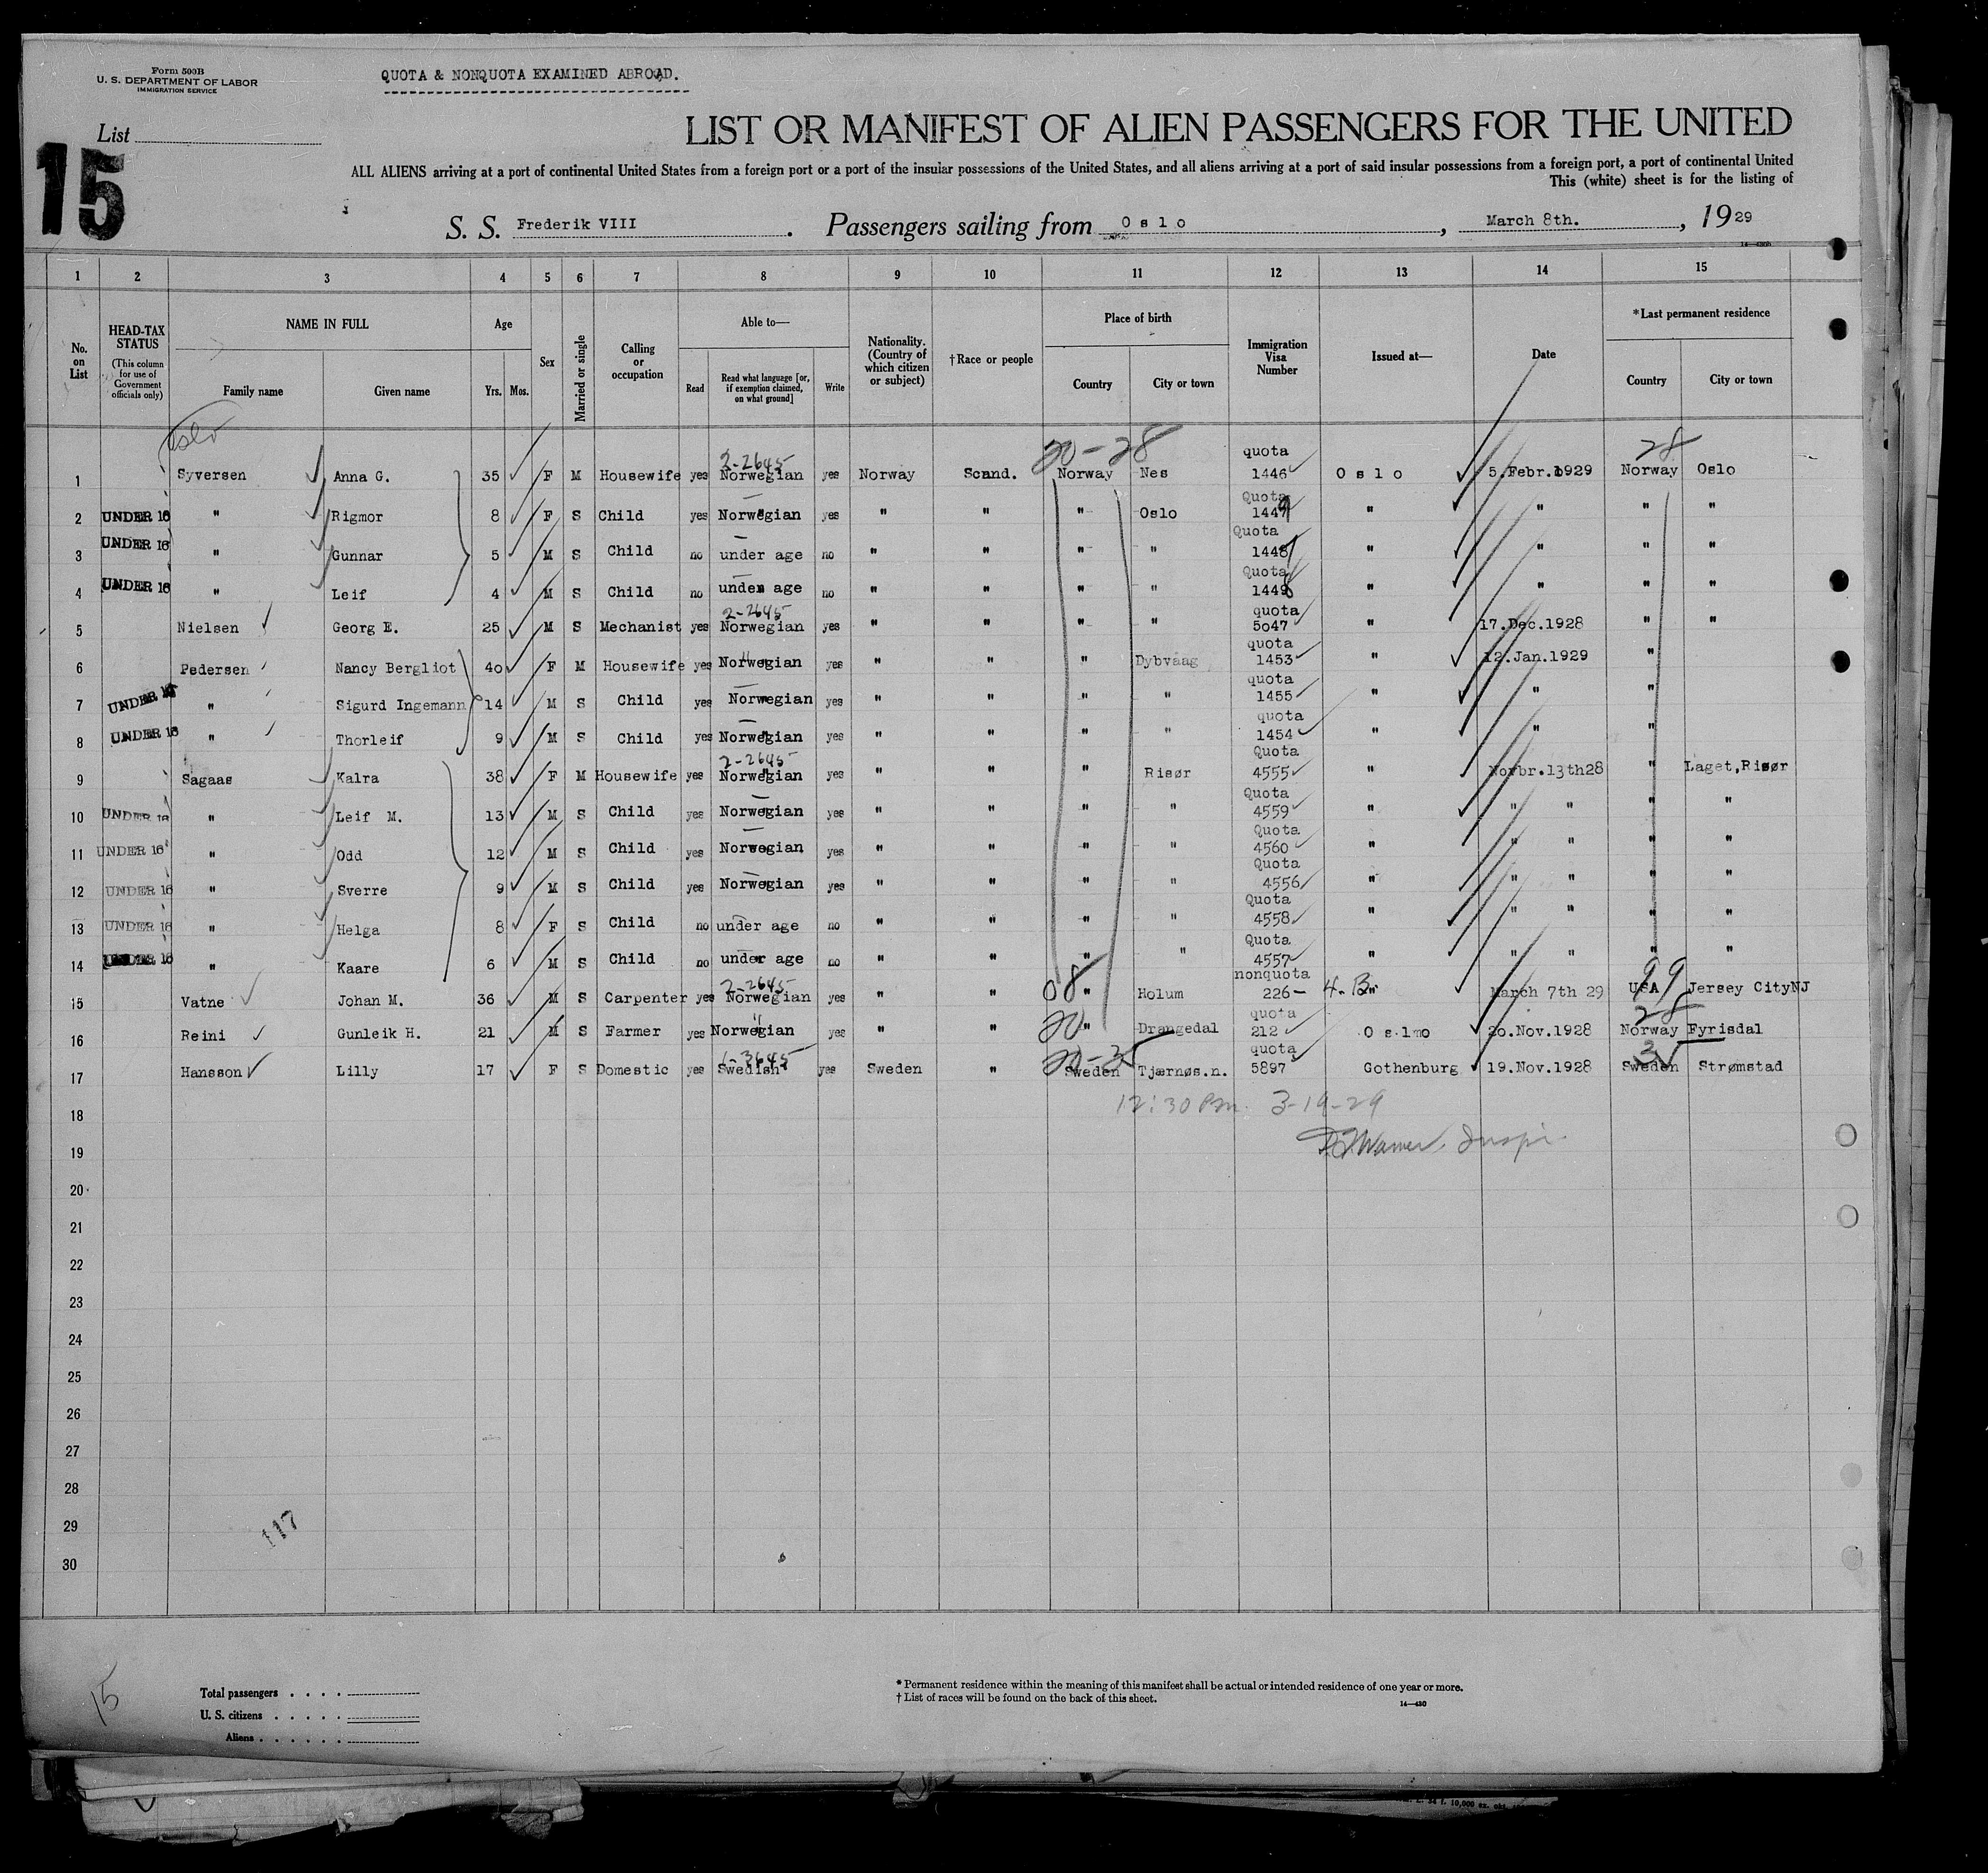 Form 500B
U. S. DEPARTMENT OF LABOR
IMMIGRATION SERVICE
QUOTA & NONQUOTA EXAMINED ABROAD.
List
15
LIST OR MANIFEST OF ALIEN PASSENGERS FOR THE UNITED
ALL ALIENS arriving at a port of continental United States from a foreign port or a port of the insular possessions of the United States, and all aliens arriving at a port of said insular possessions from a foreign port, a port of continental United
This (white) sheet is for the listing of
S. S. Frederik VIII . Passengers sailing from Oslo , March 8th. , 19 29
1 2 3 4 5 6 7 8 9 10 11 12 13 14 15
No. on List
HEAD-TAX STATUS (This column for use of Government officials only)
NAME IN FULL
Family name Given name
Age
Yrs. Mos.
Sex
Married or single
Calling or occupation
Able to—
Read Read what language [or, if exemption claimed, on what ground] Write
Nationality. (Country of which citizen or subject)
†Race or people
Place of birth
Country City or town
Immigration Visa Number
Issued at—
Date
*Last permanent residence
Country City or town
Oslo
20-28 28
2-2645
1 Syversen Anna G. 35 F M Housewife yes Norwegian yes Norway Scand. Norway Nes quota 1446 Oslo 5.Febr.1929 Norway Oslo
2 UNDER 16 " Rigmor 8 F S Child yes Norwegian yes " " " Oslo Quota 1447 " " " "
3 UNDER 16 " Gunnar 5 M S Child no under age no " " " " Quota 1448 " " " "
4 UNDER 16 " Leif 4 M S Child no under age no " " " " Quota 1449 " " " "
2-2645
5 Nielsen Georg E. 25 M S Mechanist yes Norwegian yes " " " " quota 5047 " 17.Dec.1928 " "
6 Pedersen Nancy Bergliot 40 F M Housewife yes Norwegian yes " " " Dybvaag quota 1453 " 12.Jan.1929 "
7 UNDER 16 " Sigurd Ingemann 14 M S Child yes Norwegian yes " " " " quota 1455 " " "
8 UNDER 16 " Thorleif 9 M S Child yes Norwegian yes " " " " quota 1454 " " "
2-2645
9 Sagaas Kalra 38 F M Housewife yes Norwegian yes " " " Risør Quota 4555 " Novbr.13th28 " Laget,Risør
10 UNDER 16 " Leif M. 13 M S Child yes Norwegian yes " " " " Quota 4559 " " " " "
11 UNDER 16 " Odd 12 M S Child yes Norwegian yes " " " " Quota 4560 " " " " "
12 UNDER 16 " Sverre 9 M S Child yes Norwegian yes " " " " Quota 4556 " " " " "
13 UNDER 16 " Helga 8 F S Child no under age no " " " " Quota 4558 " " " " "
14 UNDER 16 " Kaare 6 M S Child no under age no " " " " Quota 4557 " " " " "
2-2645 08 99
15 Vatne Johan M. 36 M S Carpenter yes Norwegian yes " " " Holum nonquota 226- 4-B " March 7th 29 USA Jersey CityNJ
20 28
16 Reini Gunleik H. 21 M S Farmer yes Norwegian yes " " " Drangedal quota 212 Oslo 20.Nov.1928 Norway Fyrisdal
1-3645 20-35 35
17 Hansson Lilly 17 F S Domestic yes Swedish yes Sweden " Sweden Tjærnøs.n. quota 5897 Gothenburg 19.Nov.1928 Sweden Strømstad
18 12:30 Pm. 3-19-29
19 Inspr.
20
21
22
23
24
25
26
27
28
29 117
30
15
Total passengers
U. S. citizens
Aliens
* Permanent residence within the meaning of this manifest shall be actual or intended residence of one year or more.
† List of races will be found on the back of this sheet.
14—430